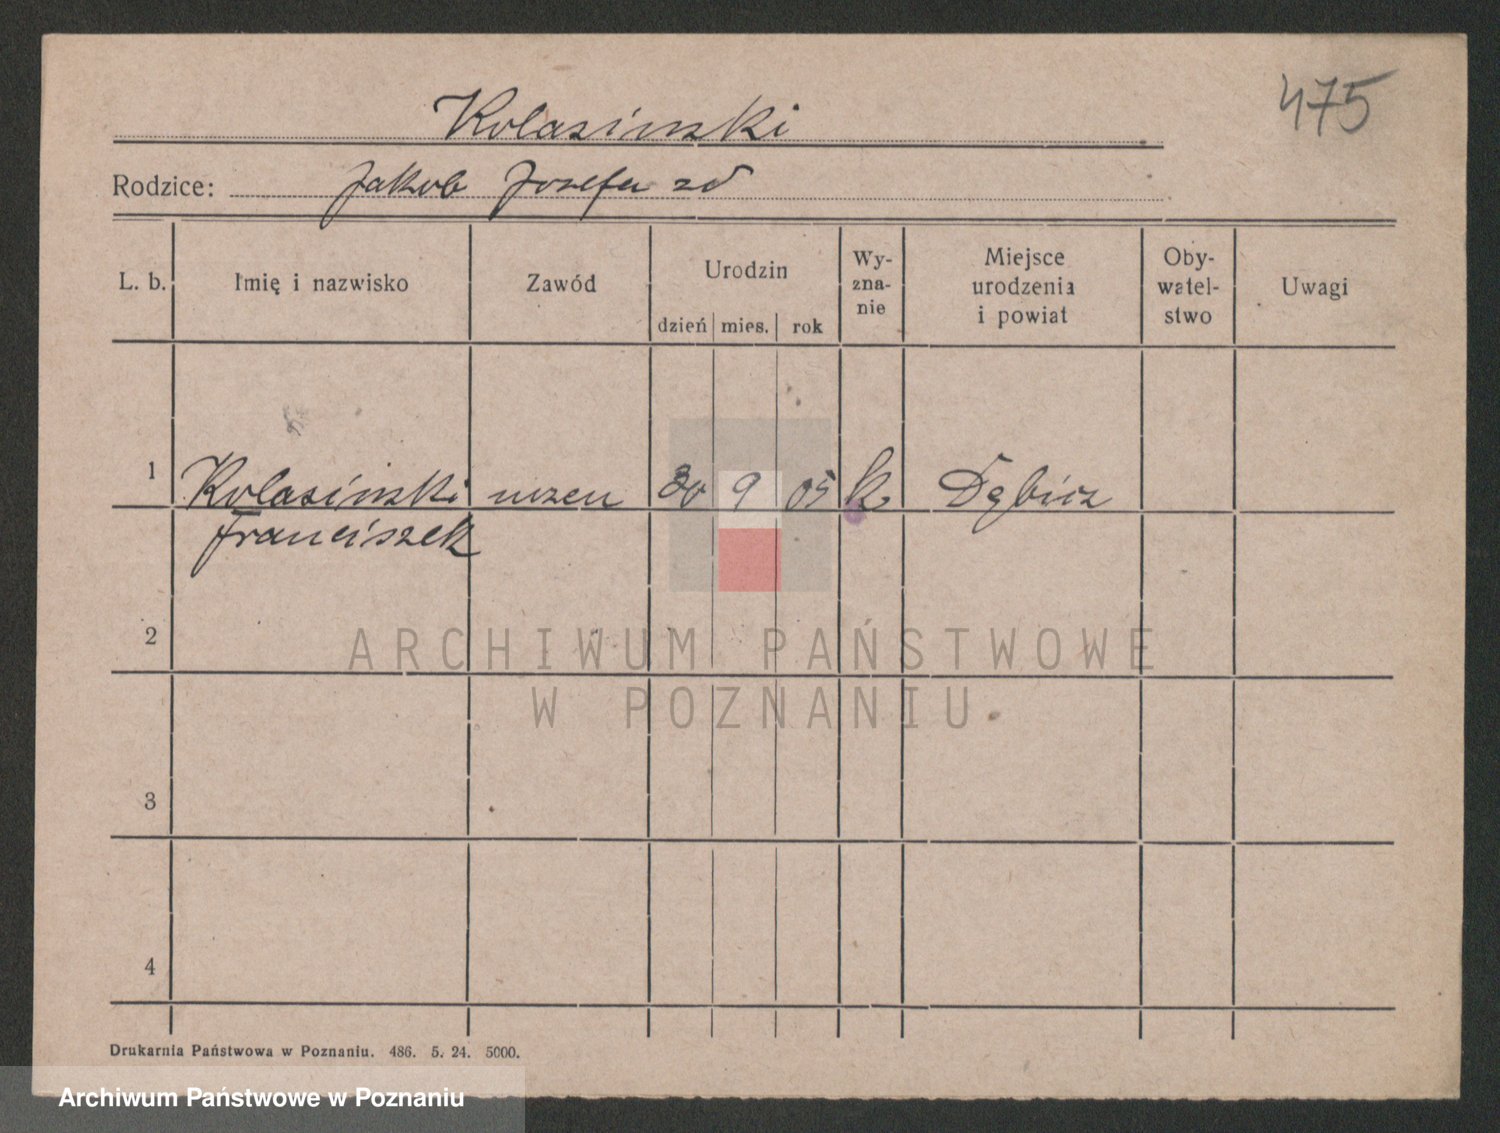 475
Kolasinski
Rodzice: Jakob Jozefa zd
L. b. Imię i nazwisko Zawód Urodzin dzień mies. rok Wy-zna-nie Miejsce urodzenia i powiat Oby-watel-stwo Uwagi
1 Kolasinski uczeń 30 9 05 k Dębicz
Franciszek
2
3
4
ARCHIWUM PAŃSTWOWE
W POZNANIU
Drukarnia Państwowa w Poznaniu. 486. 5. 24. 5000.
Archiwum Państwowe w Poznaniu